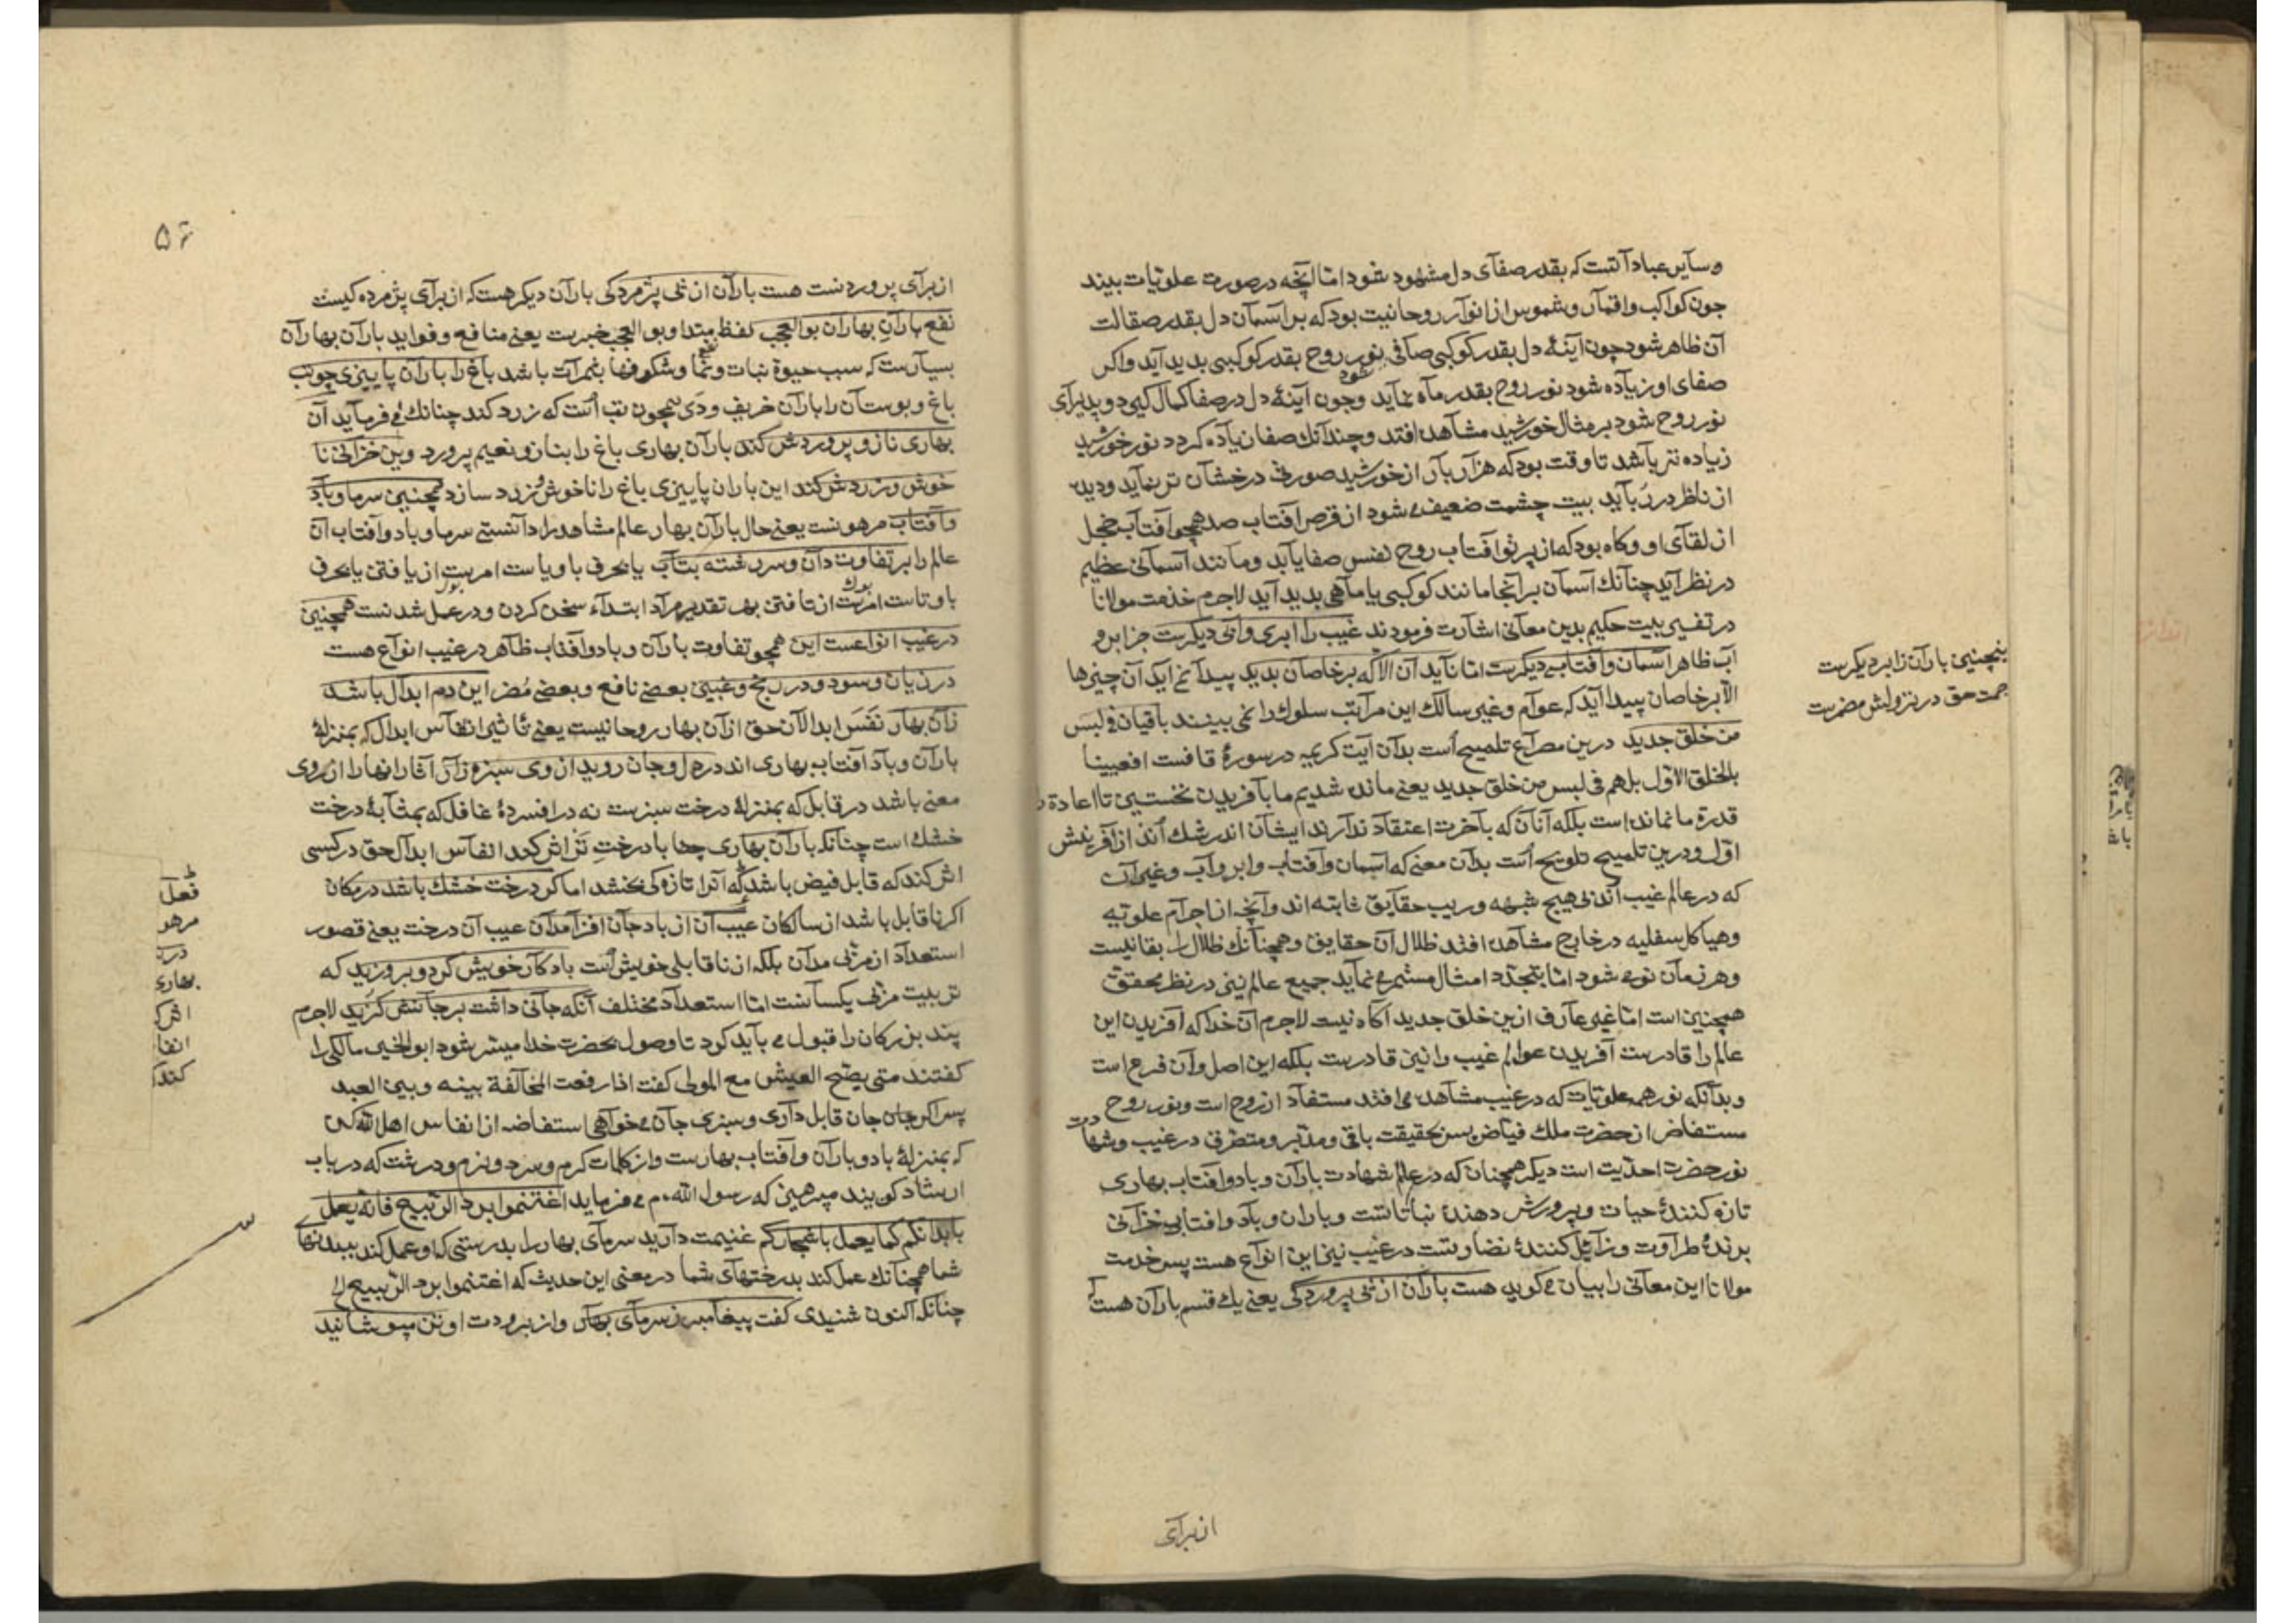 وسایر عباد آنست که بقدر صفای دل مشهود شود اما آنچه در صورت علویات بیند
چون کواکب واقمار وشموس از انوار روحانیت بود که بر آسمان دل بقدر صقالت
آن ظاهر شود چون آینهٔ دل بقدر کوکبی صافی شود نور روح بقدر کوکبی بدید آید واکر
صفای او زیاده شود نور روح بقدر ماه نماید وچون آینهٔ دل در صفا کمال کیرد وپذیرای
نور روح شود بر مثال خورشید مشاهده افتد وچندانک صفا زیاده کردد نور خورشید
زیاده تر باشد تا وقت بود که هزار بار از خورشید صوری درخشان تر نماید ودیده
از ناظر در رباید بیت چشمت ضعیف می شود از قرص آفتاب صد همچو آفتاب خجل
از لقای او وکاه بود که از پرتو آفتاب روح نفس صفا یابد ومانند آسمانی عظیم
در نظر آید چنانک آسمان بر آنجا مانند کوکبی یا ماهی بدید آید لاجرم خدمت مولانا
در تفسیر بیت حکیم بدین معانی اشارت فرمودند غیب را ابری وآبی دیکرست جز ابر و
آب ظاهر آسمان وآفتابی دیکرست اما ناید آن الا که بر خاصان بدید پیدا نمی آید آن چیزها
الا بر خاصان پیدا آید که عوام وغیر سالک این مراتب سلوک را نمی بینند باقیان فی لبس
من خلق جدید درین مصراع تلمیح است بدان آیت کریمه در سورهٔ قافست افعیینا
بالخلق الاول بل هم فی لبس من خلق جدید یعنی مانده شدیم ما بآفریدن نخستین تا اعادة
قدرة ما نمانده است بلکه آنان که بآخرت اعتقاد ندارند ایشان اندر شک اند از آفرینش
اول ودرین تلمیح تلویح است بدان معنی که آسمان وآفتاب وابر وآب وغیر آن
که در عالم غیب اندنی هیچ شبهه وریب حقایق ثابته اند وآنچه از اجرام علویه
وهیاکل سفلیه در خارج مشاهده افتد ظلال آن حقایق وهمچنانک ظلال را بقا نیست
وهر زمان نو می شود اما بتجدد امثال مستمر می نماید جمیع عالم نیز در نظر محقق
همچنین است اما غیر عارف ازین خلق جدید آکاه نیست لاجرم آن خدا که آفریدن این
عالم را قادرست آفریدن عوالم غیب را نیز قادرست بلکه این اصل وآن فرع است
وبدانکه نور همه علویات که در غیب مشاهده می افتد مستفاد از روح است ونور روح
مستفاض از حضرت ملک فیاض پس بحقیقت باقی ومدبر ومتصرف در غیب وشهادت
نور حضرت احدیت است دیکر همچنان که در عالم شهادت باران وباد وآفتاب بهاری
تازه کنندهٔ حیات وپرورش دهندهٔ نباتاتست وباران وباد وآفتاب خزانی
برندهٔ طراوت وزایل کنندهٔ نضارتست در غیب نیز این انواع هست پس خدمت
مولانا این معانی را بیان می کوید هست باران از پی پروردکی یعنی یک قسم باران هست که
از برای
ینچنین باران ز ابر دیکرست
حمت حق در نزولش مضمرست
۵۶
از برای پروردنست هست باران از پی پژمردکی باران دیکر هست که از برای پژمرده کیست
نفع باران بهاران بوالعجب لفظ نفع مبتدا وبو العجب خبرست یعنی منافع وفواید باران بهاران
بسیارست که سبب حیوة نبات ونما وشکوفها بثمرات باشد باغ را باران پاییزی چو تب
باغ وبوستان را باران خریف ودی همچون تب است که زرد کند چنانک می فرماید آن
بهاری ناز وپروردش کند باران بهاری باغ را بناز ونعیم پرورد وین خزانی نا
خوش وزردش کند این باران پاییزی باغ را ناخوش وزرد سازد همچنین سرما وباد
وآفتاب مرهونست یعنی حال باران بهار عالم مشاهده را دانستی سرما وباد وآفتاب آن
عالم را بر تفاوت دان وسر رشته بتاب یا بحرف با ویاست امر بود از یافتن یا بحرف
با وتاست امر بود از تافتن بهر تقدیر مراد ابتداء سخن کردن ودر عمل شدنست همچنین
در غیب انواعست این همچو تفاوت باران وباد وآفتاب ظاهر در غیب انواع هست
در زیان وسود ودر ربح وغبین بعضی نافع وبعضی مضر این دم ابدال باشد
زان بهار نفس ابدالان حق از آن بهار روحانیست یعنی تاثیر انفاس ابدال که بمنزلهٔ
باران وباد آفتاب بهاری اند در دل وجان روید از وی سبزه زار آثار انها را از روی
معنی باشد در قابل که بمنزلهٔ درخت سبزست نه در افسردهٔ غافل که بمثابهٔ درخت
خشک است چنانکه باران بهاری چها با درخت تر اثر کند انفاس ابدال حق در کسی
اثر کند که قابل فیض باشد که آنرا تازه کی بخشد اما کر درخت خشک باشد در مکان
اکر ناقابل باشد از سالکان عیب آن از باد جان افزا مدان عیب آن درخت یعنی قصور
استعداد از مربی مدان بلکه از ناقابلی خویش است باد کار خویش کرد وبروزید که
تربیت مربی یکسانست اما استعداد مختلف آنکه جانی داشت بر جانش کزید لاجرم
پند بزرکان را قبول می باید کرد تا وصول بحضرت خدا میسر شود ابو الخیر مالکی را
کفتند متی یصح العیش مع المولی کفت اذا رفعت المخالفة بینه وبین العبد
پس اکر جان جان قابل داری وسبزی جان می خواهی استفاضه از انفاس اهل الله کن
که بمنزلهٔ باد وباران وآفتاب بهارست واز کلمات کرم وسرد ونرم ودرشت که در باب
ارشاد کویند مپرهیز که رسول الله م می فرماید اغتنموا برد الربیع فانه یعمل
بابدانکم کما یعمل باشجارکم غنیمت دارید سرمای بهار را بدرستی که او عمل کند ببدنهای
شما همچنانک عمل کند بدرختهای شما در معنی این حدیث که اغتنموا برد الربیع الخ
چنانکه اکنون شنیدی کفت پیغامبر ز سرمای بهار واز برودت او تن مپوشانید
فعل
مرهو
درد
بهاری
اثر ک
انفا
کند